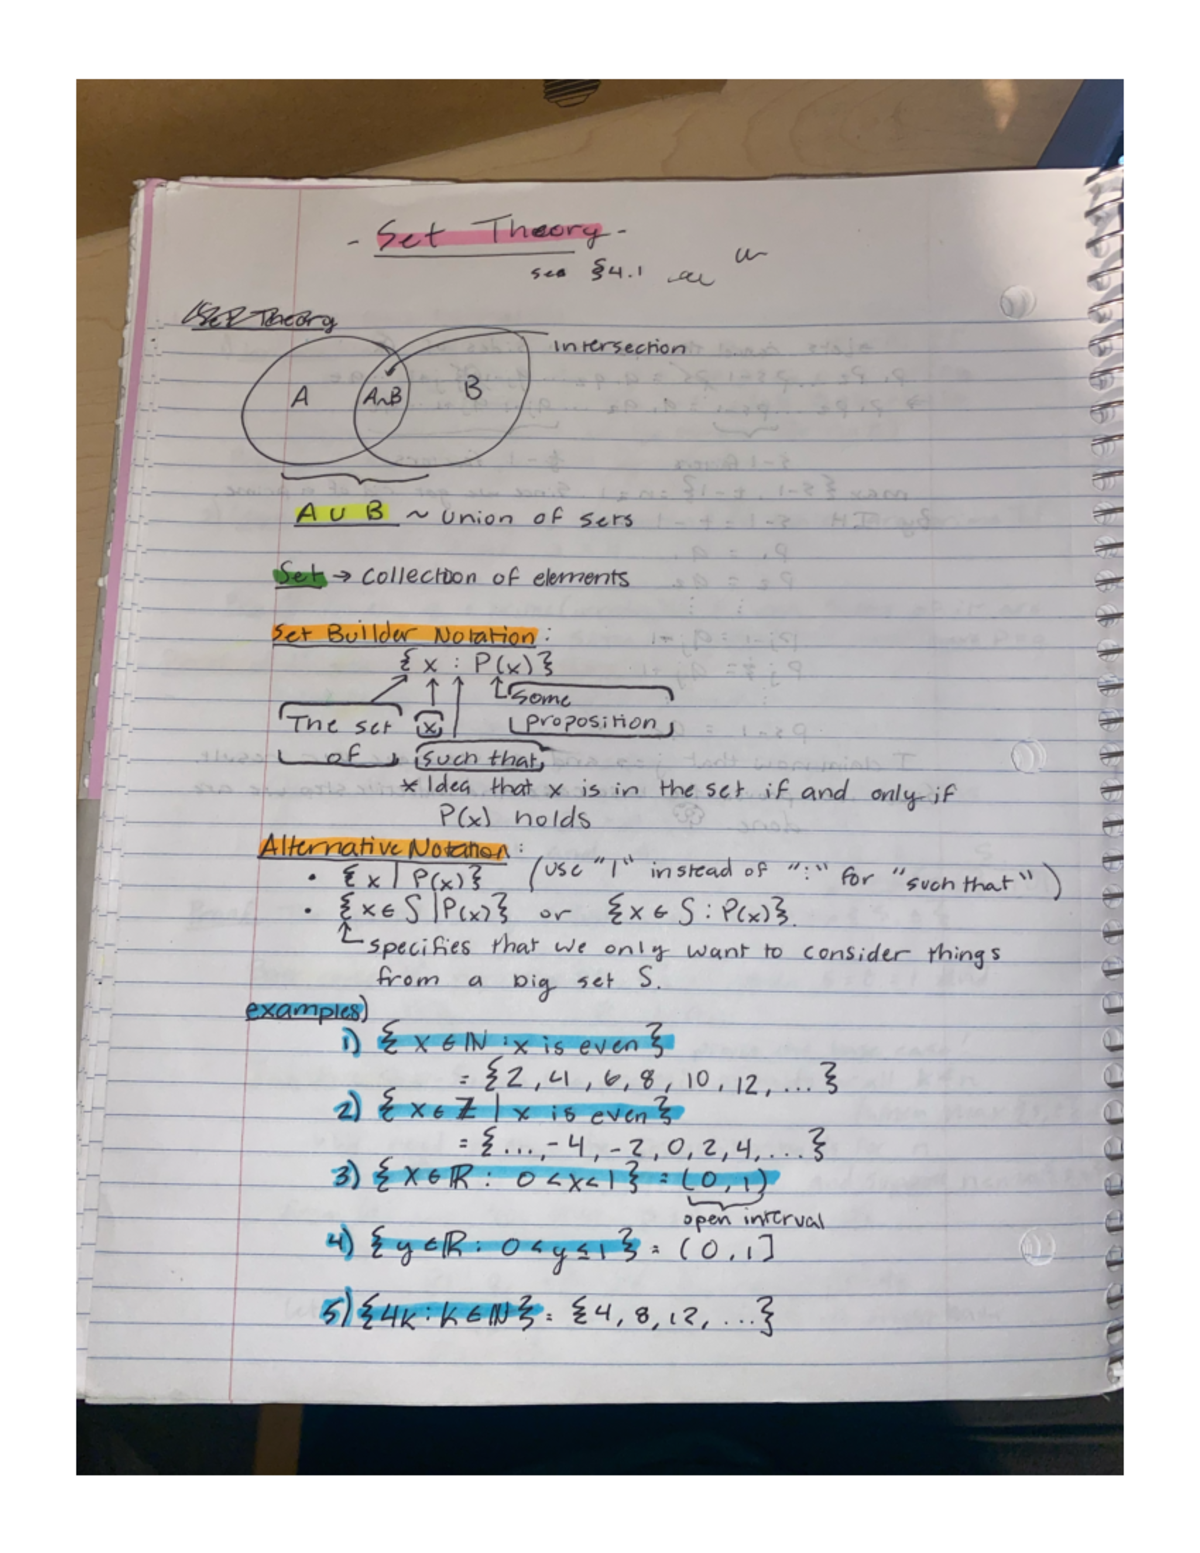 - Set Theory -
see §4.1
Set Theory
intersection
A A∩B B
A ∪ B ~ Union of sets
Set → collection of elements
Set Builder Notation:
{ x : P(x) }
some
The set x proposition
of such that
* Idea that x is in the set if and only if
P(x) holds
Alternative Notation:
• { x | P(x) } (use "|" instead of ":" for "such that")
• { x ∈ S | P(x) } or { x ∈ S : P(x) }.
specifies that we only want to consider things
from a big set S.
examples)
1) { x ∈ ℕ : x is even }
= { 2, 4, 6, 8, 10, 12, ... }
2) { x ∈ ℤ | x is even }
= { ..., -4, -2, 0, 2, 4, ... }
3) { x ∈ ℝ : 0 < x < 1 } = (0, 1)
open interval
4) { y ∈ ℝ : 0 < y ≤ 1 } = (0, 1]
5) { 4k : k ∈ ℕ } = { 4, 8, 12, ... }